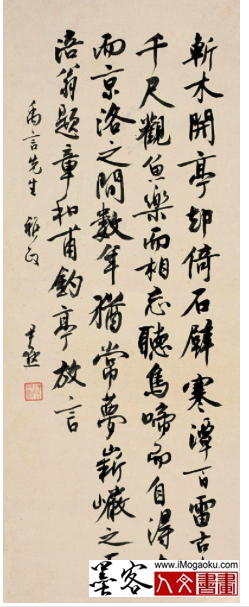 斬木開亭却倚石壁寒潭百雷古
千尺觀魚樂而相忘聽鳥啼而自得
而京洛之間數年猶常夢嶄巖之
涪翁題章和甫釣亭放言
禹言先生 雅政
尹默
墨客
www.iMogaoku.com
人文書畫